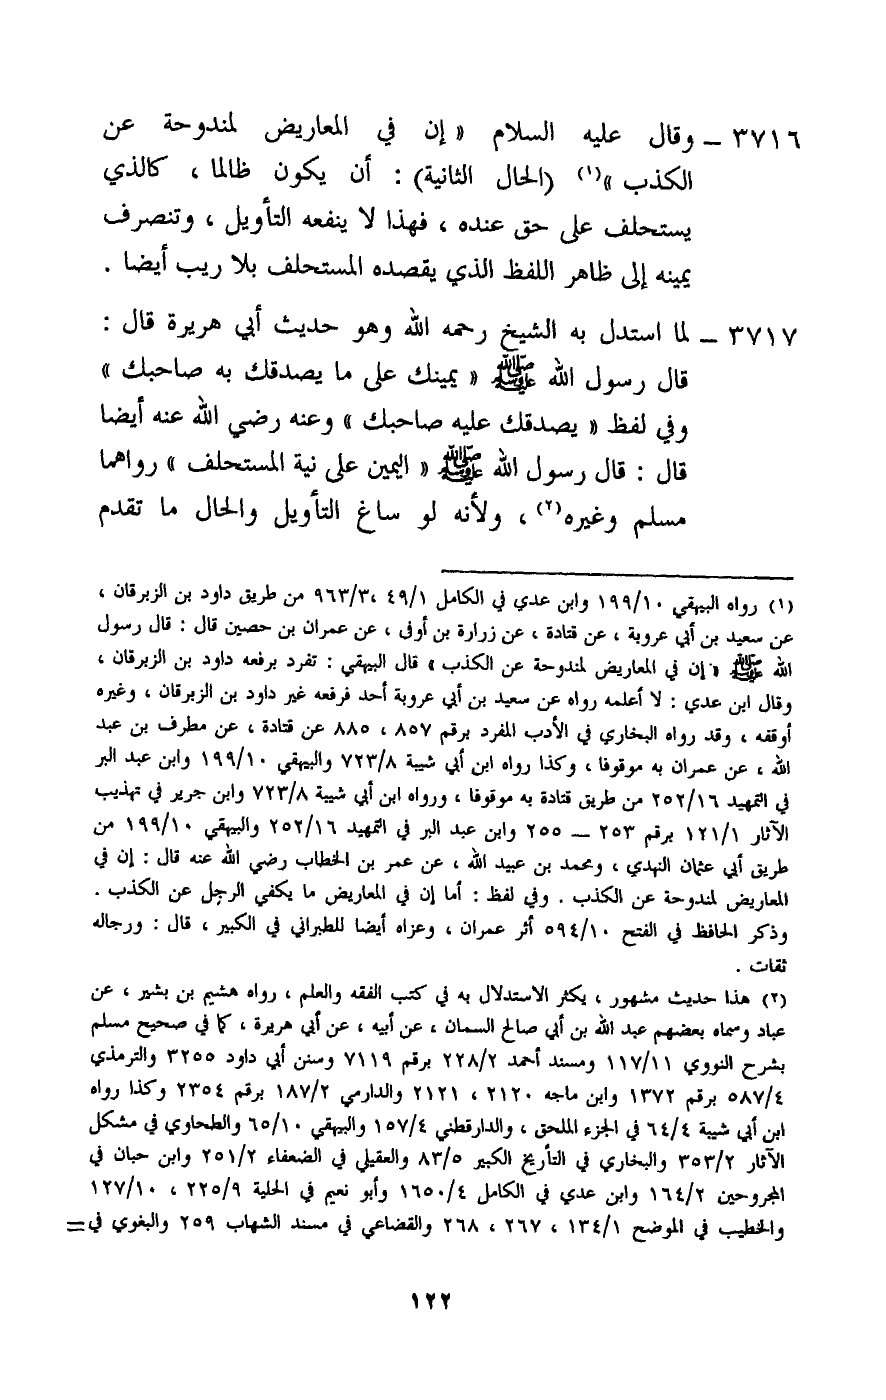 ٣٧١٦ ــ وقال عليه السلام « إن في المعاريض لمندوحة عن
الكذب »(١) (الحال الثانية) : أن يكون ظالما ، كالذي
يستحلف على حق عنده ، فهذا لا ينفعه التأويل ، وتنصرف
يمينه إلى ظاهر اللفظ الذي يقصده المستحلف بلا ريب أيضا .
٣٧١٧ ــ لما استدل به الشيخ رحمه الله وهو حديث أبي هريرة قال :
قال رسول الله ﷺ « يمينك على ما يصدقك به صاحبك »
وفي لفظ « يصدقك عليه صاحبك » وعنه رضي الله عنه أيضا
قال : قال رسول الله ﷺ « اليمين على نية المستحلف » رواهما
مسلم وغيره(٢) ، ولأنه لو ساغ التأويل والحال ما تقدم
(١) رواه البيهقي ١٩٩/١٠ وابن عدي في الكامل ٤٩/١ ،٩٦٣/٣ من طريق داود بن الزبرقان ،
عن سعيد بن أبي عروبة ، عن قتادة ، عن زرارة بن أوفى ، عن عمران بن حصين قال : قال رسول
الله ﷺ « إن في المعاريض لمندوحة عن الكذب » قال البيهقي : تفرد برفعه داود بن الزبرقان ،
وقال ابن عدي : لا أعلمه رواه عن سعيد بن أبي عروبة أحد فرفعه غير داود بن الزبرقان ، وغيره
أوقفه ، وقد رواه البخاري في الأدب المفرد برقم ٨٥٧ ، ٨٨٥ عن قتادة ، عن مطرف بن عبد
الله ، عن عمران به موقوفا ، وكذا رواه ابن أبي شيبة ٧٢٣/٨ والبيهقي ١٩٩/١٠ وابن عبد البر
في التمهيد ٢٥٢/١٦ من طريق قتادة به موقوفا ، ورواه ابن أبي شيبة ٧٢٣/٨ وابن جرير في تهذيب
الآثار ١٢١/١ برقم ٢٥٣ ــ ٢٥٥ وابن عبد البر في التمهيد ٢٥٢/١٦ والبيهقي ١٩٩/١٠ من
طريق أبي عثمان النهدي ، ومحمد بن عبيد الله ، عن عمر بن الخطاب رضي الله عنه قال : إن في
المعاريض لمندوحة عن الكذب . وفي لفظ : أما إن في المعاريض ما يكفي الرجل عن الكذب .
وذكر الحافظ في الفتح ٥٩٤/١٠ أثر عمران ، وعزاه أيضا للطبراني في الكبير ، قال : ورجاله
ثقات .
(٢) هذا حديث مشهور ، يكثر الاستدلال به في كتب الفقه والعلم ، رواه هشيم بن بشير ، عن
عباد وسماه بعضهم عبد الله بن أبي صالح السمان ، عن أبيه ، عن أبي هريرة ، كما في صحيح مسلم
بشرح النووي ١١٧/١١ ومسند أحمد ٢٢٨/٢ برقم ٧١١٩ وسنن أبي داود ٣٢٥٥ والترمذي
٥٨٧/٤ برقم ١٣٧٢ وابن ماجه ٢١٢٠ ، ٢١٢١ والدارمي ١٨٧/٢ برقم ٢٣٥٤ وكذا رواه
ابن أبي شيبة ٦٤/٤ في الجزء الملحق ، والدارقطني ١٥٧/٤ والبيهقي ٦٥/١٠ والطحاوي في مشكل
الآثار ٣٥٣/٢ والبخاري في التأريخ الكبير ٨٣/٥ والعقيلي في الضعفاء ٢٥١/٢ وابن حبان في
المجروحين ١٦٤/٢ وابن عدي في الكامل ١٦٥٠/٤ وأبو نعيم في الحلية ٢٢٥/٩ ، ١٢٧/١٠
والخطيب في الموضح ١٣٤/١ ، ٢٦٧ ، ٢٦٨ والقضاعي في مسند الشهاب ٢٥٩ والبغوي في =
١٢٢